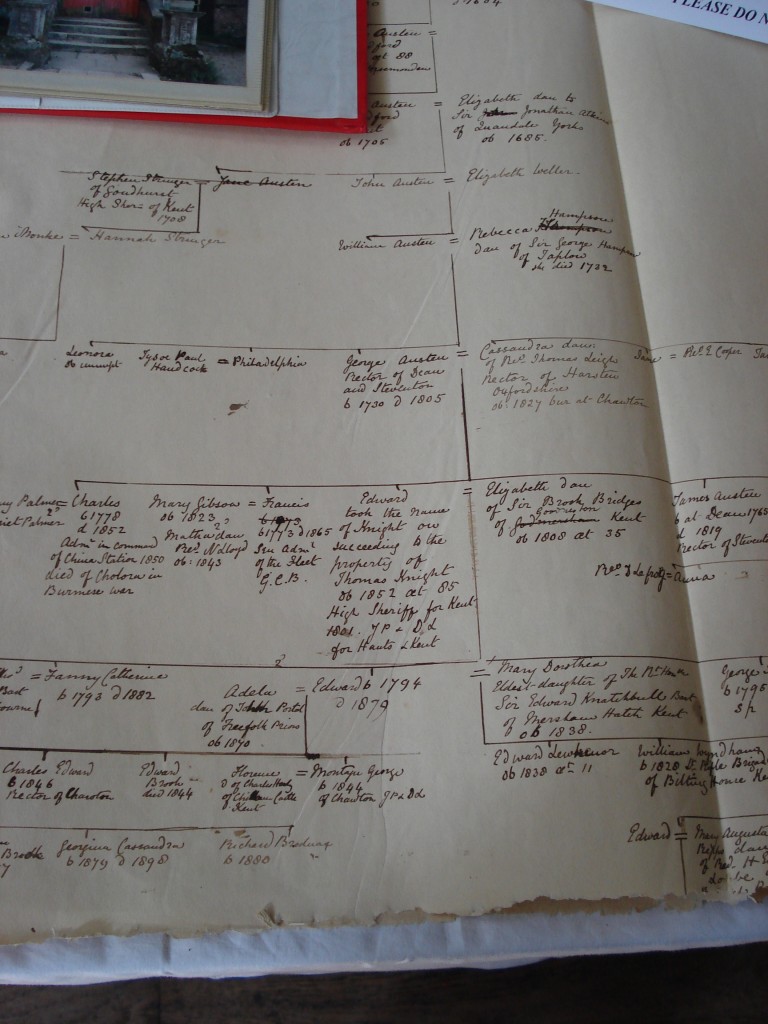 PLEASE DO N
Austen =
ford
at 88
Austen =
ford
ob 1705
Elizabeth dau to
Sir John Jonathan Atkins
of Yorks
ob 1685.
Stephen Stringer = Jane Austen
of Goudhurst
High Sher= of Kent
1708
John Austen = Elizabeth Weller
= Hannah Stringer
William Austen = Rebecca Hampson
Hampson
Dau of Sir George Hampson
of Taplow
she died 1732
Leonora
ob unmupt
Tysoe Paul
Handcock
= Philadelphia
George Austen =
Rector of Dean
and Steventon
b 1730 d 1805
Cassandra daur
of Revd Thomas Leigh
Rector of Harsten
Oxfordshire
ob: 1827 bur at Chawton
Jane = Revd E Cooper
ny Palmer =
riet Palmer
Charles
b 1778
d 1852
Adml in command
of China Station 1850
died of Cholora in
Burmese war
Mary Gibson =
ob 1823
Martha dau
Revd N Lloyd
ob: 1843
Francis
b 1773
b 1773 d 1865
Sen Adml
of the Fleet
G.C.B.
Edward =
took the name
of Knight on
succeeding to the
property of
Thomas Knight
ob 1852 æt 85
High Sheriff for Kent
1801. JP & DL
for Hants & Kent
Elizabeth dau
of Sir Brook Bridges
of Godmersham Kent
ob 1808 at 35
James Austen
b at Dean 1765
d 1819
Rector of Stevent
Revd J Lefroy = Anna
= Fanny Catherine
b 1793 d 1882
Adela =
dau of John Portal
of Freefolk Priors
ob 1870
2
Edward b 1794
d 1879
= 1 Mary Dorothea
Eldest daughter of The Rt Hon
Sir Edward Knatchbull Bart
of Mersham Hatch Kent
ob 1838.
George
b 1795
Charles Edward
b 1846
Rector of Chawton
Edward
Brook
died 1844
Florence =
d of Charles Hardy
of Chilham Castle
Kent
Montagu George
b 1844
of Chawton JP & DL
Edward Lewkenor
ob 1838 at 11
William Wyndham
b 1828 Lt Rifle Brigad
of Bilting House Ke
Brook
Georgina Cassandra
b 1879 d 1898
Richard Brodnax
b 1880
Edward =
Mary Augusta
dau
of Revd H E